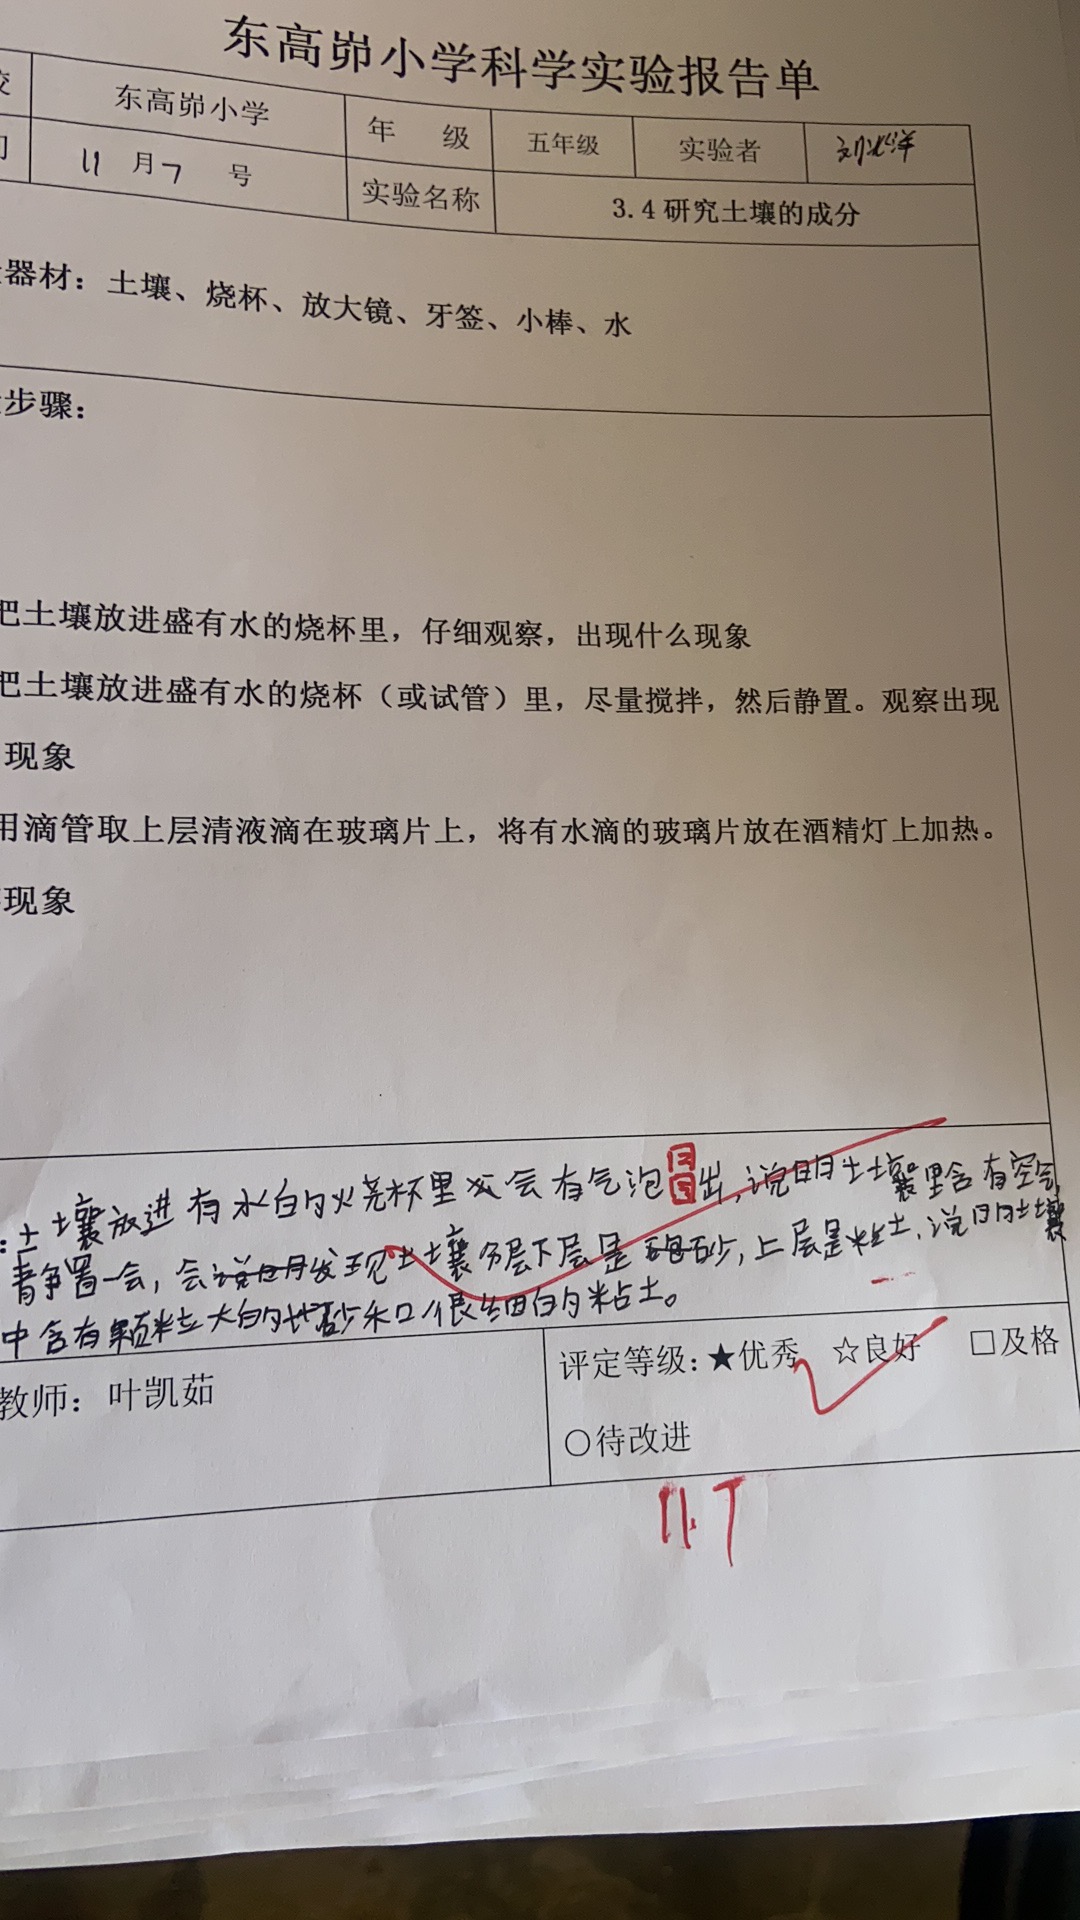 东高峁小学科学实验报告单
东高峁小学 年 级 五年级 实验者 刘洋
11 月 7 号 实验名称 3.4 研究土壤的成分
器材：土壤、烧杯、放大镜、牙签、小棒、水
步骤：
把土壤放进盛有水的烧杯里，仔细观察，出现什么现象
把土壤放进盛有水的烧杯（或试管）里，尽量搅拌，然后静置。观察出现
现象
用滴管取上层清液滴在玻璃片上，将有水滴的玻璃片放在酒精灯上加热。
现象
：土壤放进有水的烧杯里会有气泡冒出，说明土壤里含有空气，
静置一会，会发现土壤分层下层是砂，上层是粘土，说明土壤
中含有颗粒大的砂和很细的粘土。
教师：叶凯茹 评定等级：★优秀 ☆良好 □及格
○待改进
11.7